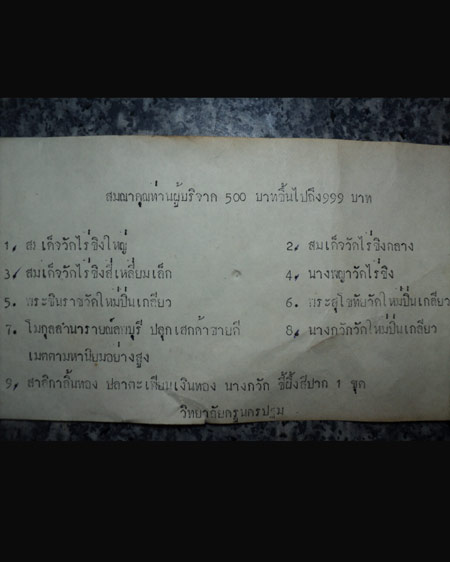 สมณาคุณท่านผู้บริจาค 500 บาทขึ้นไปถึง999 บาท
1, สมเด็จวัดไร่ขิงใหญ่ 2, สมเด็จวัดไร่ขิงกลาง
3, สมเด็จวัดไร่ขิงสี่เหลี่ยมเล็ก 4, นางพญาวัดไร่ขิง
5. พระชินราชวัดใหม่ปิ่นเกลียว 6. พระสุโขทัยวัดใหม่ปิ่นเกลียว
7. โมกุลลานารายณ์ลพบุรี ปลุกเสกค้าขายดี 8, นางกวักวัดใหม่ปิ่นเกลียว
เมตตามหานิยมอย่างสูง
9, สาลิกาลิ้นทอง ปลาตะเพียนเงินทอง นางกวัก ขี้ผึ้งสีปาก 1 ชุด
วิทยาลัยครูนครปฐม